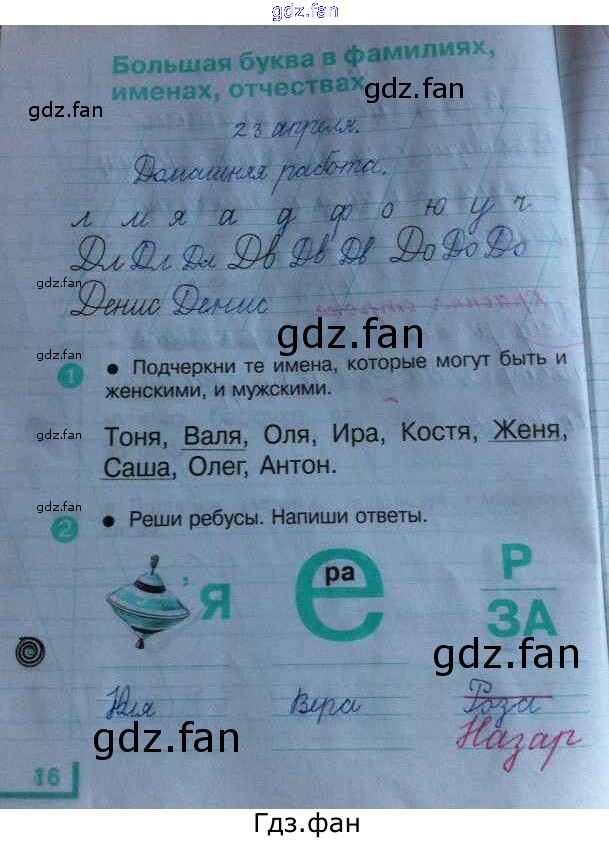 gdz.fan
Большая буква в фамилиях,
именах, отчествах
gdz.fan
gdz.fan
23 апреля.
Домашняя работа.
л м я а д ф о ю у ч
Дл Дл Дл Дв Дв Дв До До До
gdz.fan
Денис Денис
gdz.fan
gdz.fan
1 • Подчеркни те имена, которые могут быть и
женскими, и мужскими.
Тоня, Валя, Оля, Ира, Костя, Женя,
gdz.fan
Саша, Олег, Антон.
gdz.fan
2 • Реши ребусы. Напиши ответы.
’Я
е ра
Р
ЗА
gdz.fan
Юля Вера Роза
Назар
gdz.fan
16
Гдз.фан